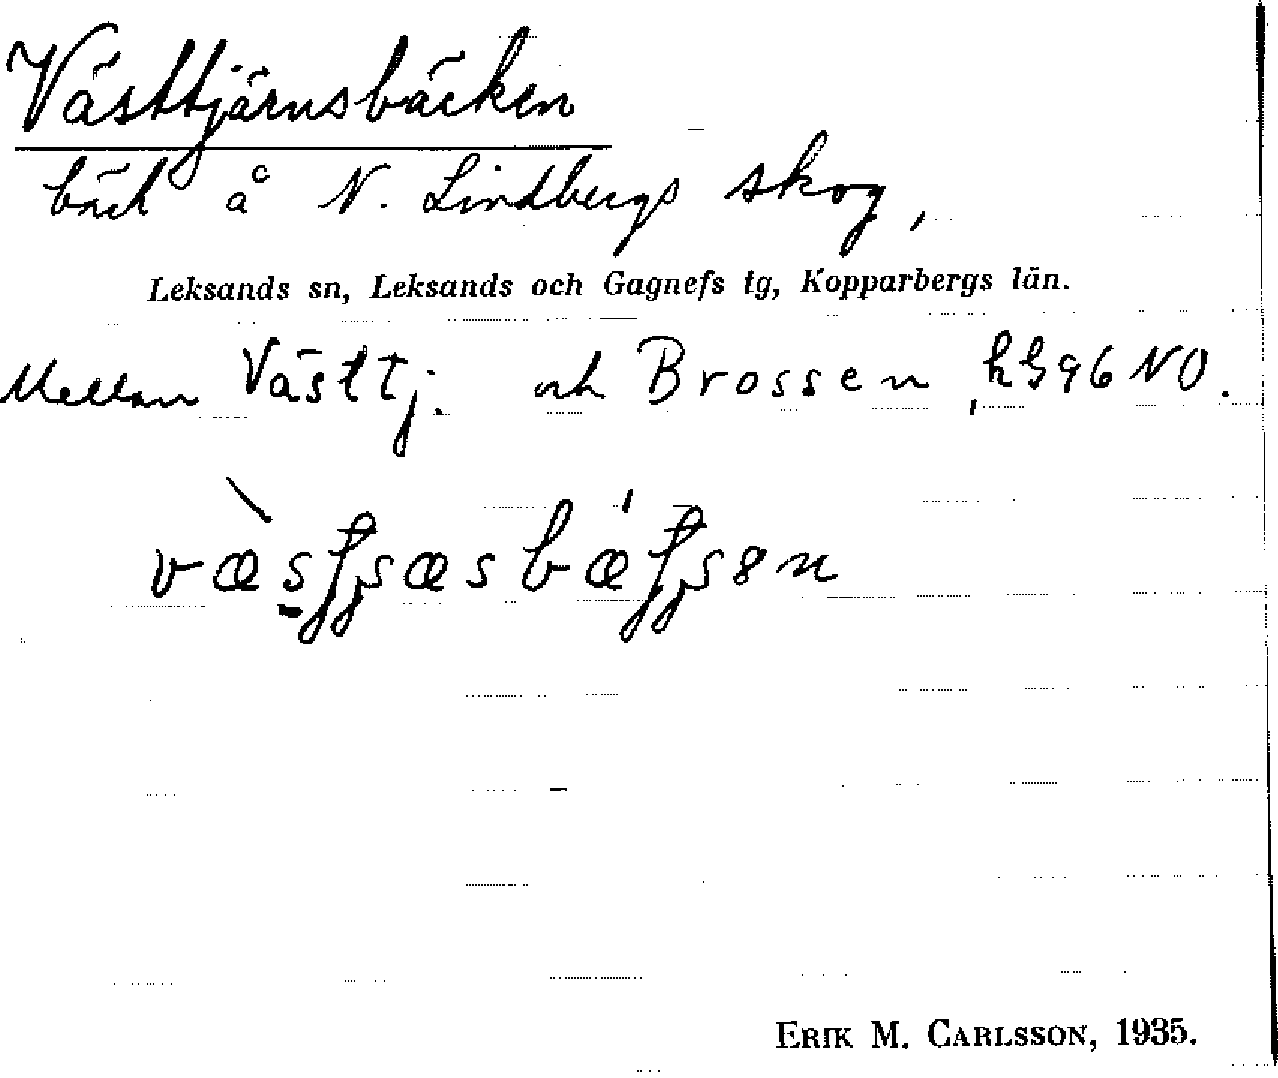 Västtjärnsbäcken
bäck å N. Lindbergs skog,
Leksands sn, Leksands och Gagnefs tg, Kopparbergs län.
Mellan Västtj. och Brossen, hg 96 NO.
ERIK M. CARLSSON, 1935.